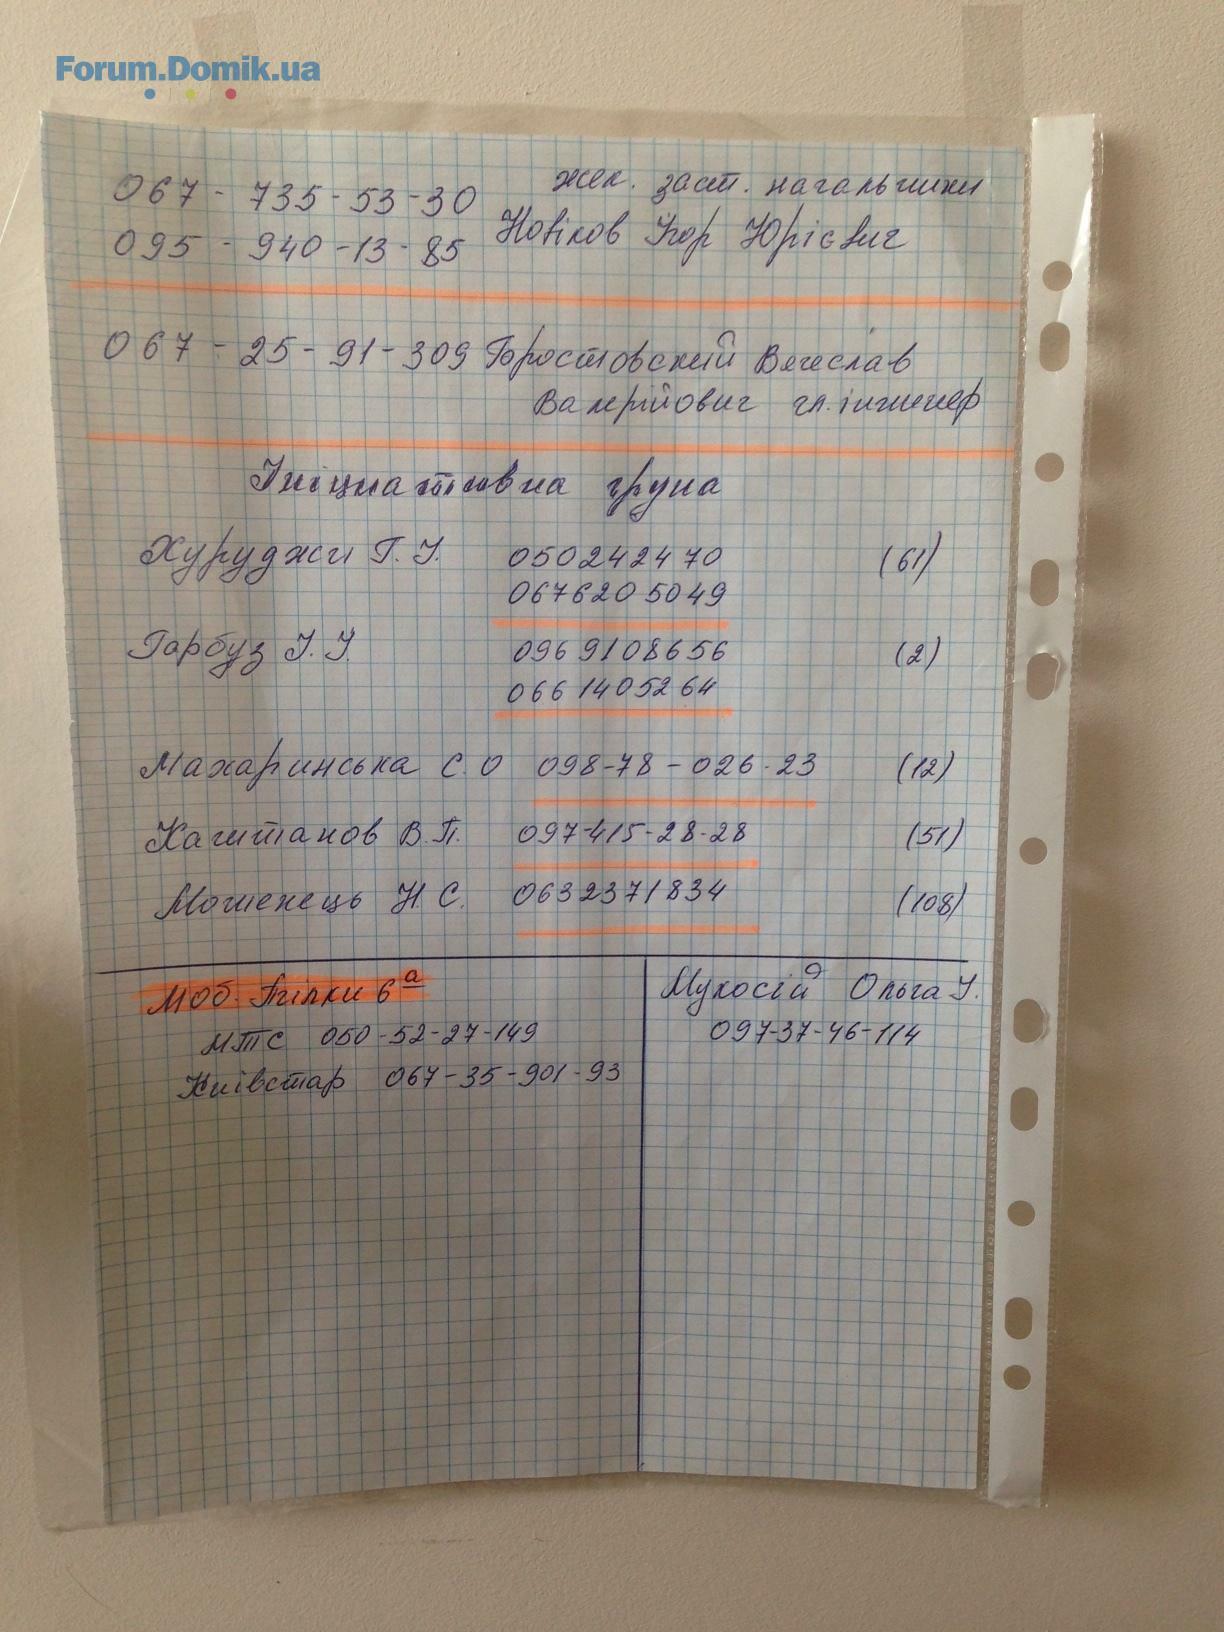 Forum.Domik.ua
067 - 735-53-30 жек. заст. начальника
095 - 940-13-85 Новіков Ігор Юрієвич
067 - 25-91-309 Горостовский Вячеслав
Валерійович гл. інженер
Ініциативна група
Хуруджи Г. І. 050242470 (61)
0676205049
Гарбуз І. І. 0969108656 (2)
0661405264
Махаринська С.О 098-78-026-23 (12)
Каштанов В.П. 097-415-28-28 (51)
Мошенець Н.С. 0632371834 (108)
Моб. Гілки 6а Мукосій Ольга І.
МТС 050-52-27-149 097-37-46-114
Київстар 067-35-901-93